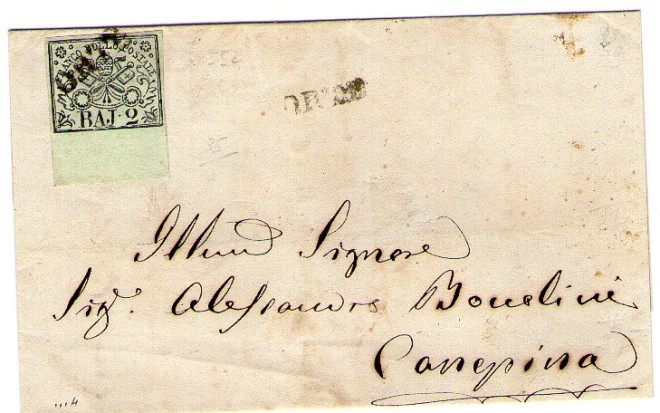 FRANCO BOLLO POSTALE
BAJ. 2
ORTE
35
Illmo Signore
Sig. Alessandro
Canepina